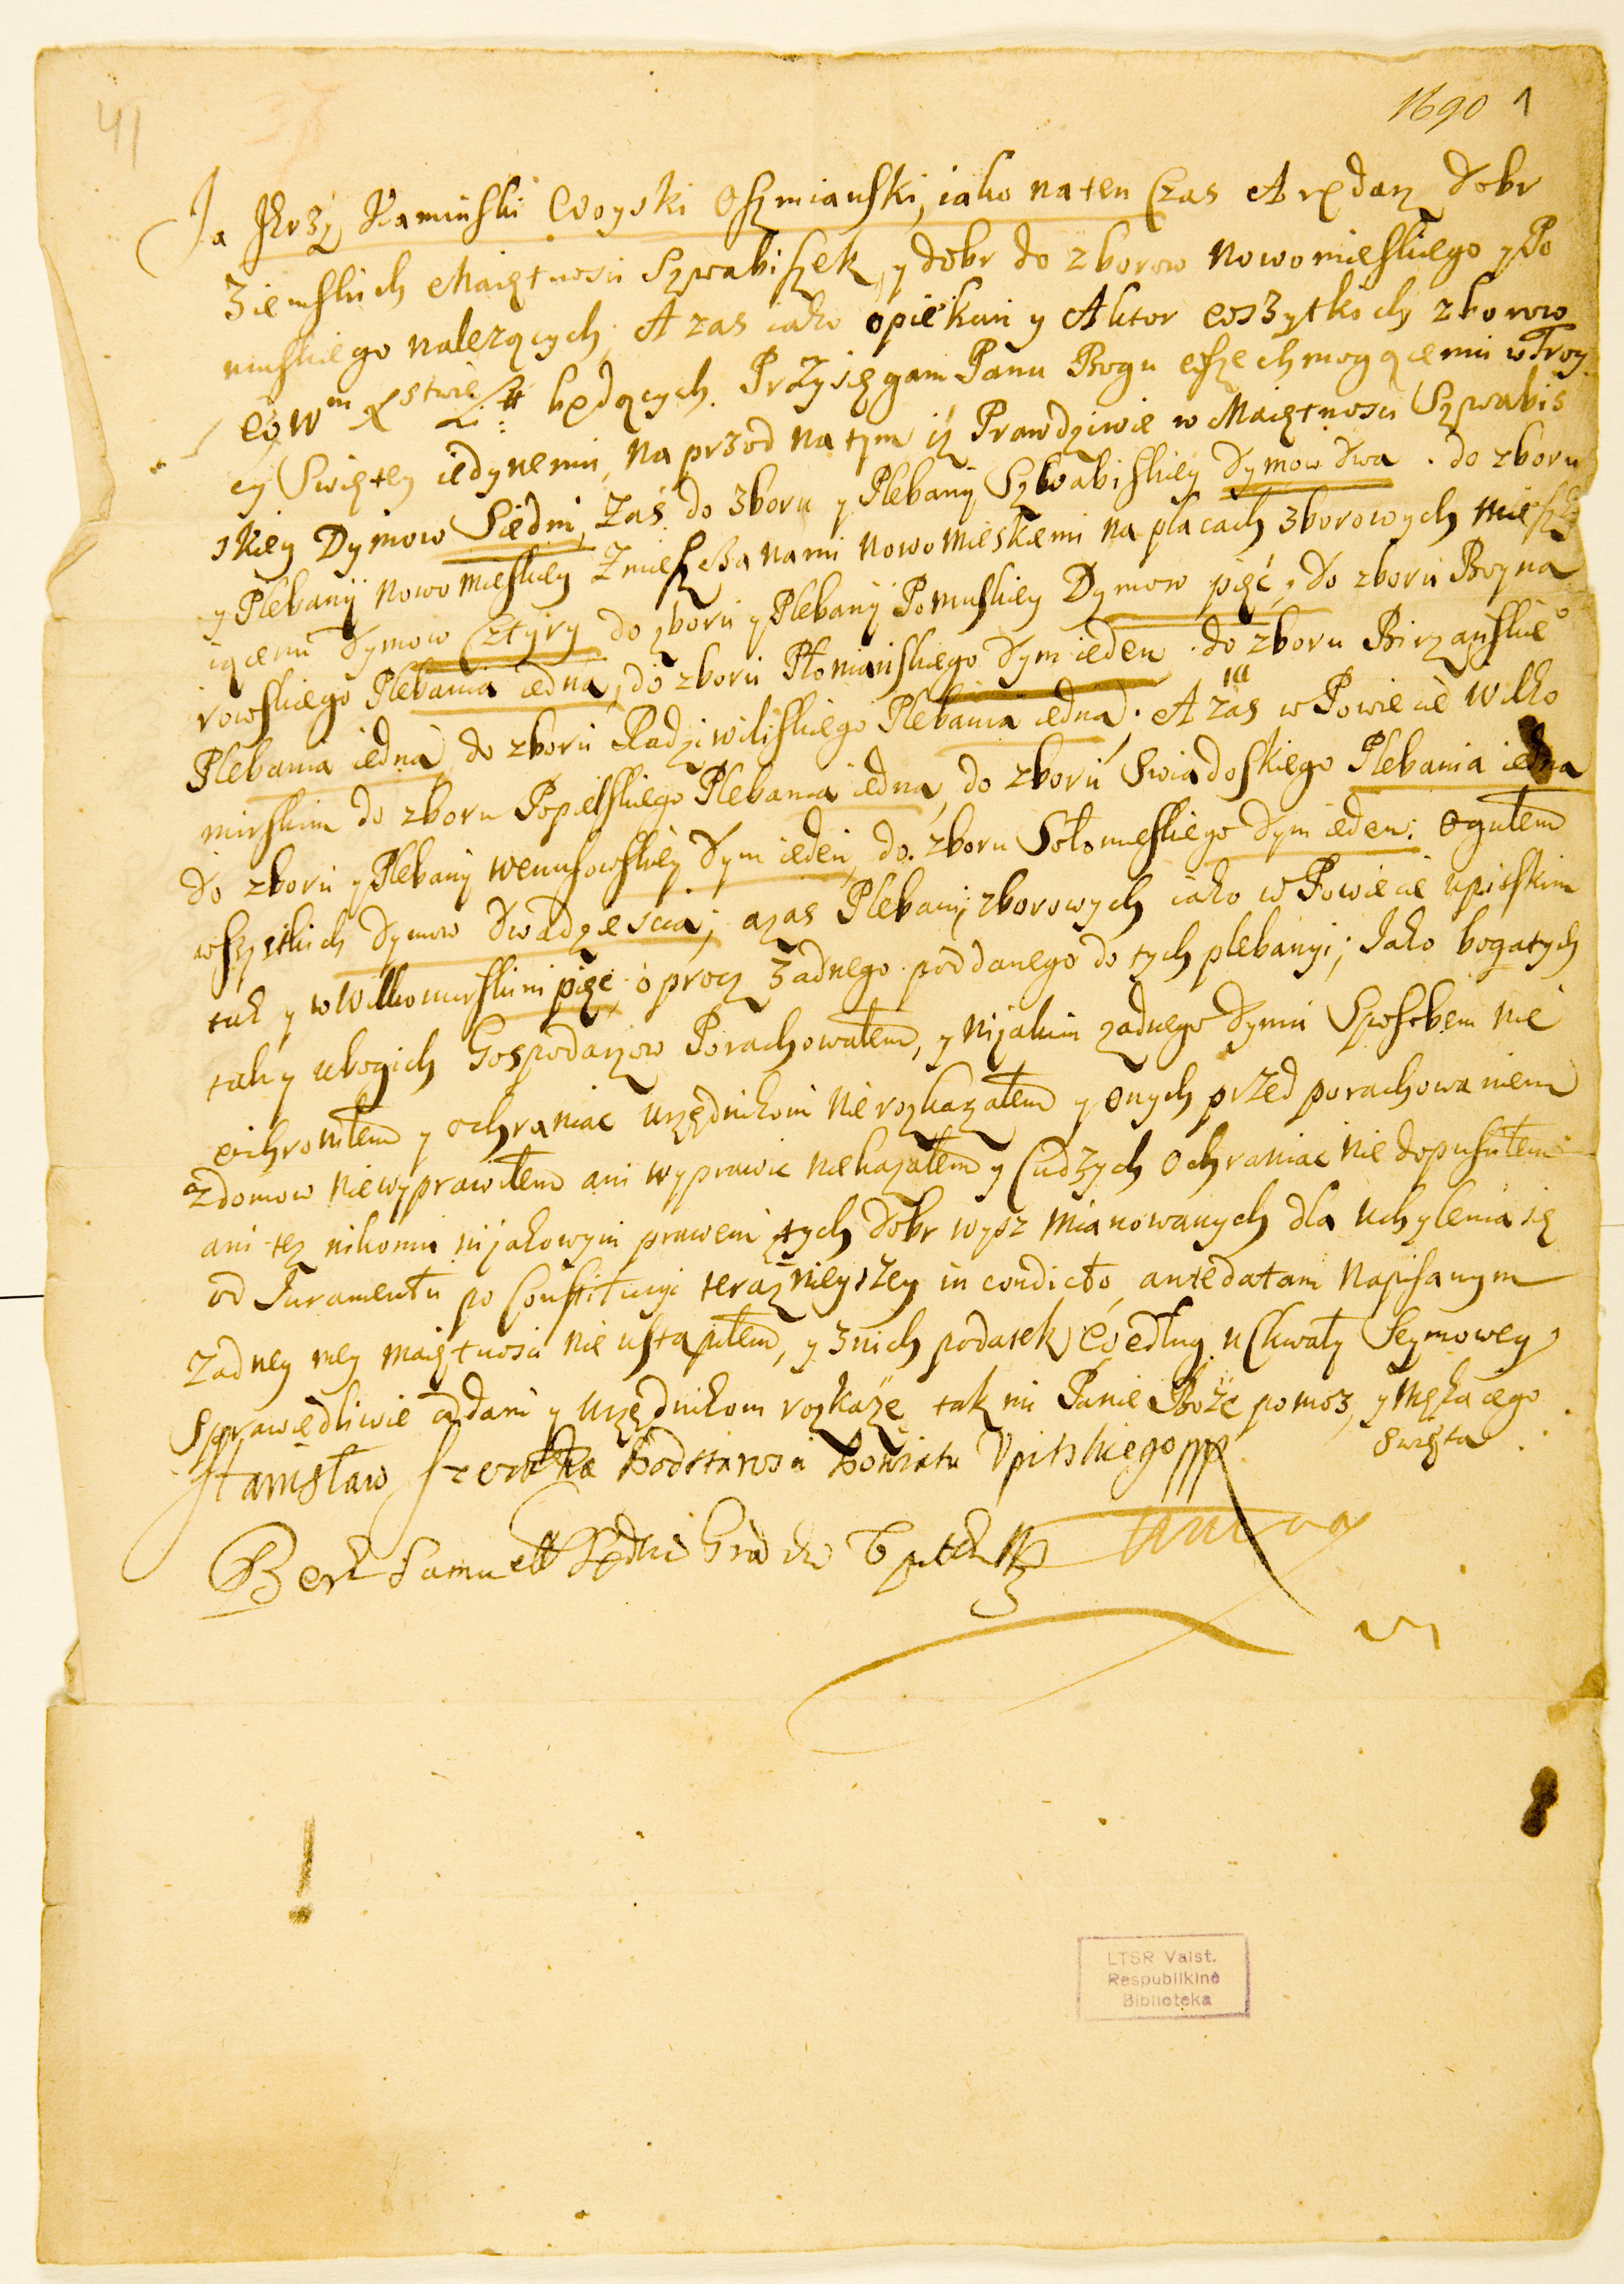 41
1690 1
Ja Jerzy Kaminski Woyski Oszmianski, iako na ten Czas Arędarz Dobr
Ziemskich Maiętnosci Szwabiszek, y dobr do zborow Nowomieskiego y Po
muskiego należących, A zas iako opiekun y Aktor wszytkich zborow
w Wm X stwie Litt: będących. Przysięgam Panu Bogu wszechmogącemu w Troy
cy Swiętey iedynemu, na przod na tym iż Prawdziwie w Maiętnosci Szwabis
skiey Dymow Siedm, Zaś do zboru y Plebanij Szwabiskiey Dymow dwa. do zboru
y Plebanij Nowomieskiey Zmieszczanami Nowomieskiemi na placach zborowych miesz
iącemi Dymow Cztyry do zboru y Plebanij Pomuskiey Dymow pięć, do zboru Boyna
rowskiego Plebania iedna, do zboru Płonianskiego Dym ieden. do zboru Birzanskieo
Plebania iedna, do zboru Radziwiliskiego Plebania iedna. A zas w Powiecie Wilko
mirskim do zboru Popielskiego Plebania iedna, do zboru Swiadoskiego Plebania iedna
do zboru y Plebanij Wenusowskiey Dym ieden, do zboru Sołomieskiego Dym ieden: Ogułem
wszystkich Dymow Dwadziescia; a zas Plebanij zborowych iako w Powiecie Upitskim
tak y w Wilkomirskim pięc, oprocz żadnego poddanego do tych plebanyi; Jako bogatych
tak y ubogich Gospodarzow Porachowałem, y nijakim żadnego Dymu Sposobem nie
uchroniłem y ochraniac urzędnikom nie rozkazałem y onych przed porachowaniem
z domow nie wyprawiłem ani wyprawic nie kazałem y Cudzych Ochraniac nie dopusciłem
ani tez nikomu nijakowym prawem tych Dobr wysz mianowanych dla uchylenia się
od Juramentu po Constitucyi terazniejszey in condicto antedatam napisanym
żadney mey maiętnosci nie ustąpiłem, y z nich podatek według uchwały Seymowey
Sprawiedliwie oddam y urzędnikom rozkażę tak mi Panie Boże pomoz, y męka iego
Swięta.
Stanisław Podstarosci Powiatu Upitskiego mp
Samuell
LTSR Valst.
Respublikinė
Biblioteka